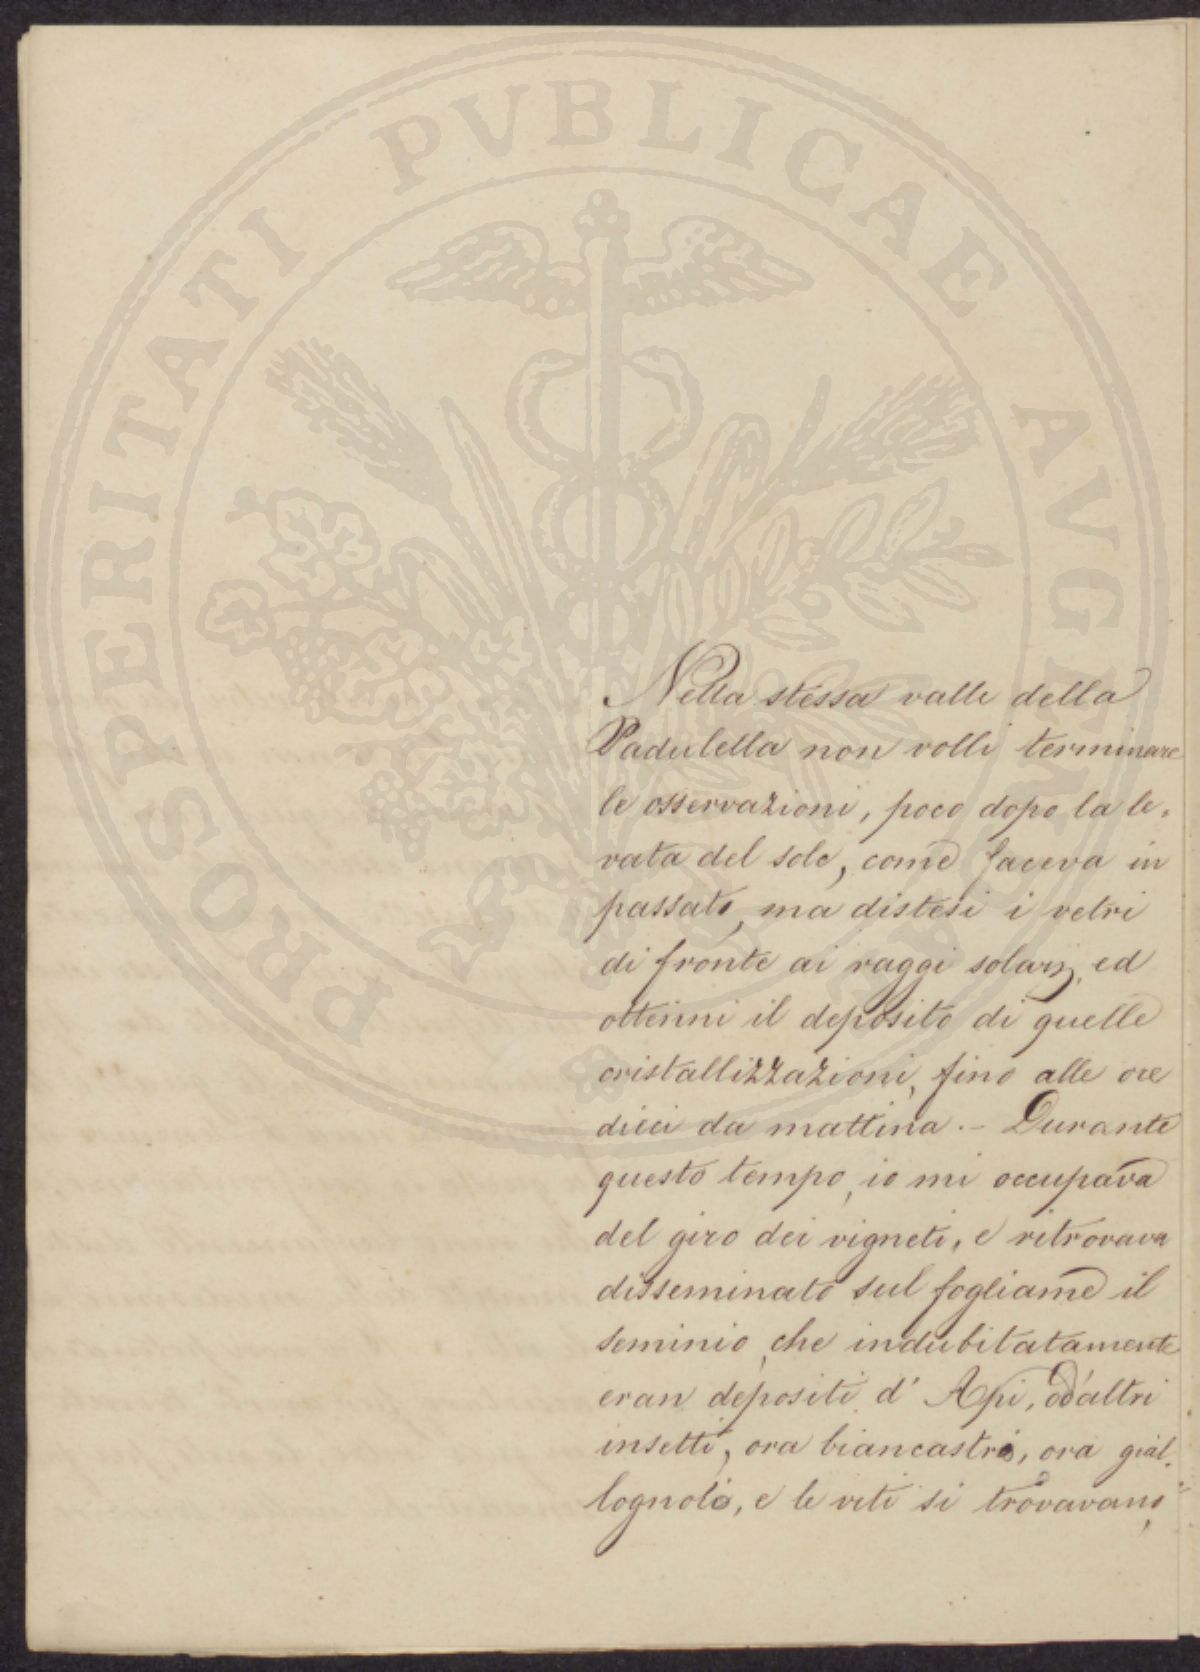 PROSPERITATI PVBLICAE AVGENDAE
Nella stessa valle della
Padulella non volli terminare
le osservazioni, poco dopo la le-
vata del sole, come faceva in
passato, ma distesi i vetri
di fronte ai raggi solarj, ed
ottenni il deposito di quelle
cristallizzazioni, fino alle ore
dieci da mattina.- Durante
questo tempo, io mi occupava
del giro dei vigneti, e ritrovava
disseminato sul fogliame il
seminio, che indubitatamente
eran depositi d' Api, od'altri
insetti, ora biancastri, ora gial-
lognoli, e le viti si trovavano,